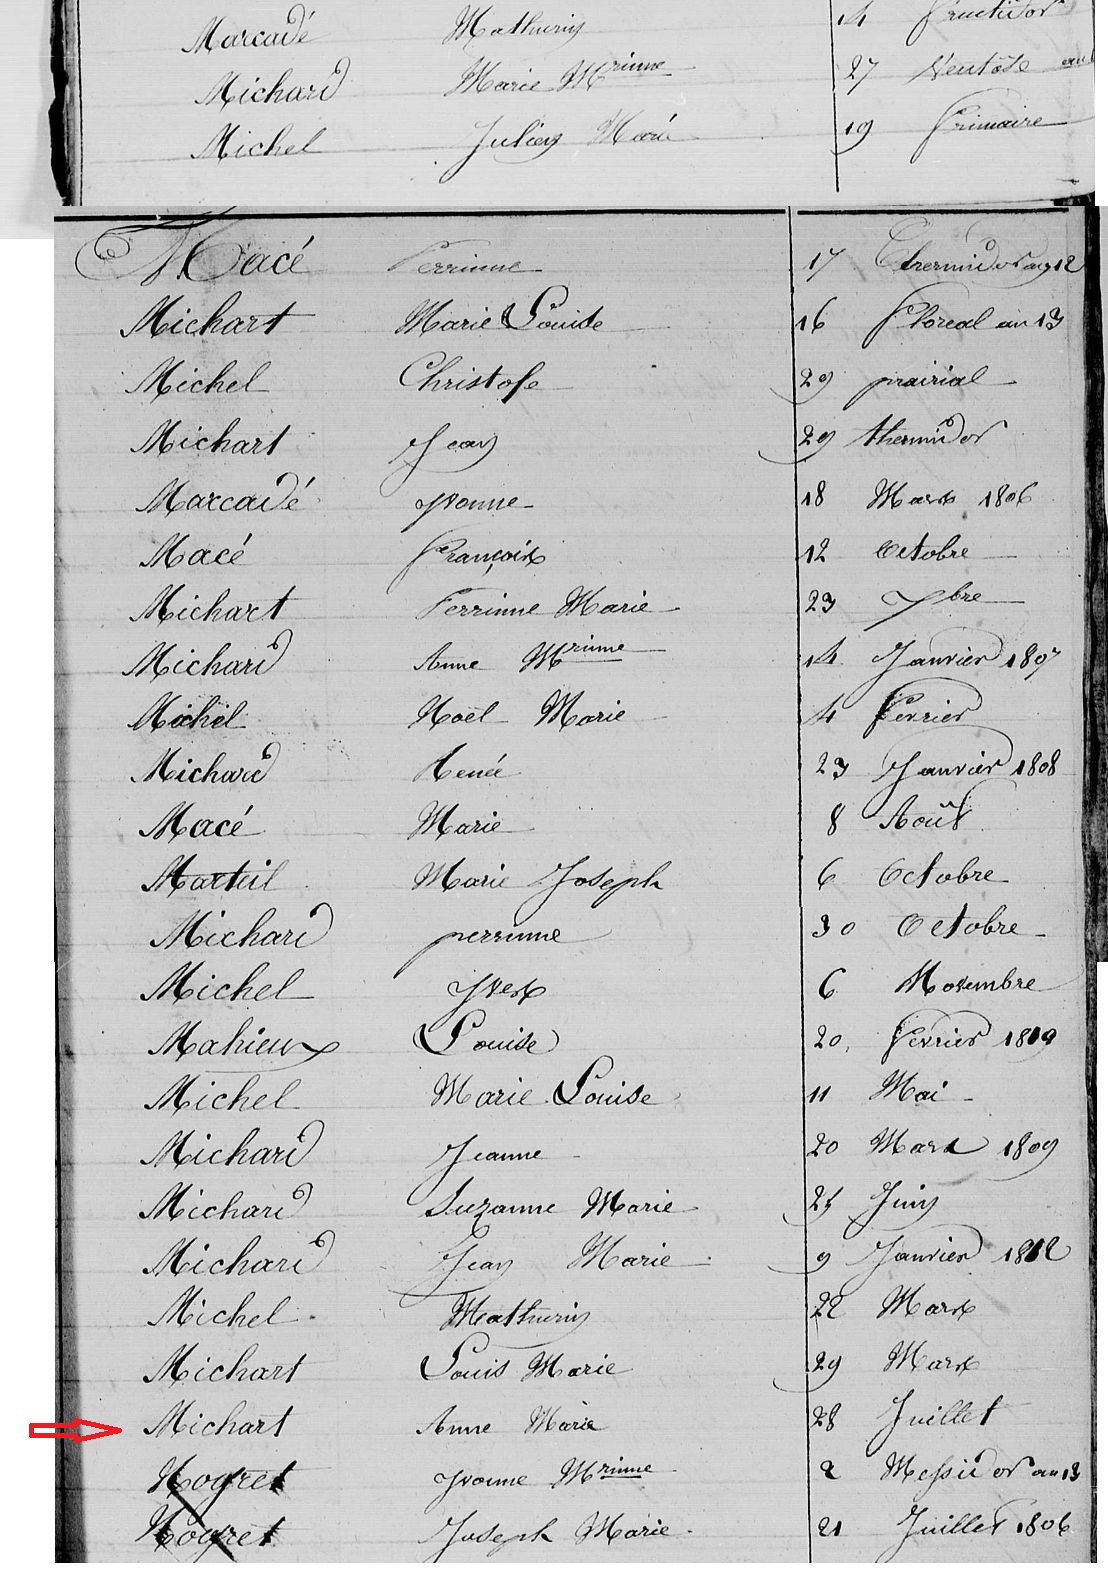 Marcadé Mathurin 14 fructidor
Michard Marie Mrinne 27 Ventôse an
Michel Julien Marie 19 frimaire
Macé Perrinne 17 Thermidor an 12
Michart Marie Louise 16 floreal an 13
Michel Christofe 29 prairial
Michart Jean 29 thermidor
Marcadé yvonne 18 Mars 1806
Macé françois 12 octobre
Michart Perrinne Marie 23 7bre
Michard Anne Mrinne 14 Janvier 1807
Michel Noël Marie 4 fevrier
Michard Renée 23 Janvier 1808
Macé Marie 8 Août
Marteil Marie Joseph 6 Octobre
Michard perrinne 30 Octobre
Michel yves 6 Novembre
Mahieux Louise 20 fevrier 1819
Michel Marie Louise 11 Mai
Michard Jeanne 20 Mars 1809
Michard Suzanne Marie 25 Juin
Michard Jean Marie 9 Janvier 1812
Michel Mathurin 22 Mars
Michart Louis Marie 29 Mars
Michart Anne Marie 28 Juillet
Nogret yvonne Mrinne 2 Messidor an 13
Nogret Joseph Marie 21 Juillet 1806